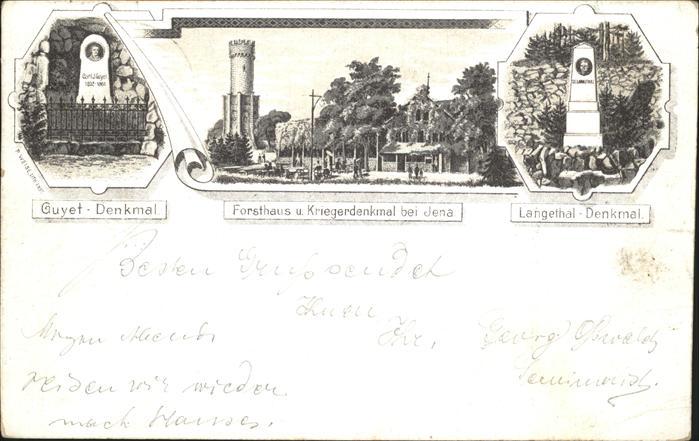 Carl J. Guyet
Guyet - Denkmal.
Forsthaus u. Kriegerdenkmal bei Jena
Langethal - Denkmal.
Besten Gruss sendet
Ihnen
Ihr, Georg Osswald
Morgen Abend
wir wieder
nach Hause.